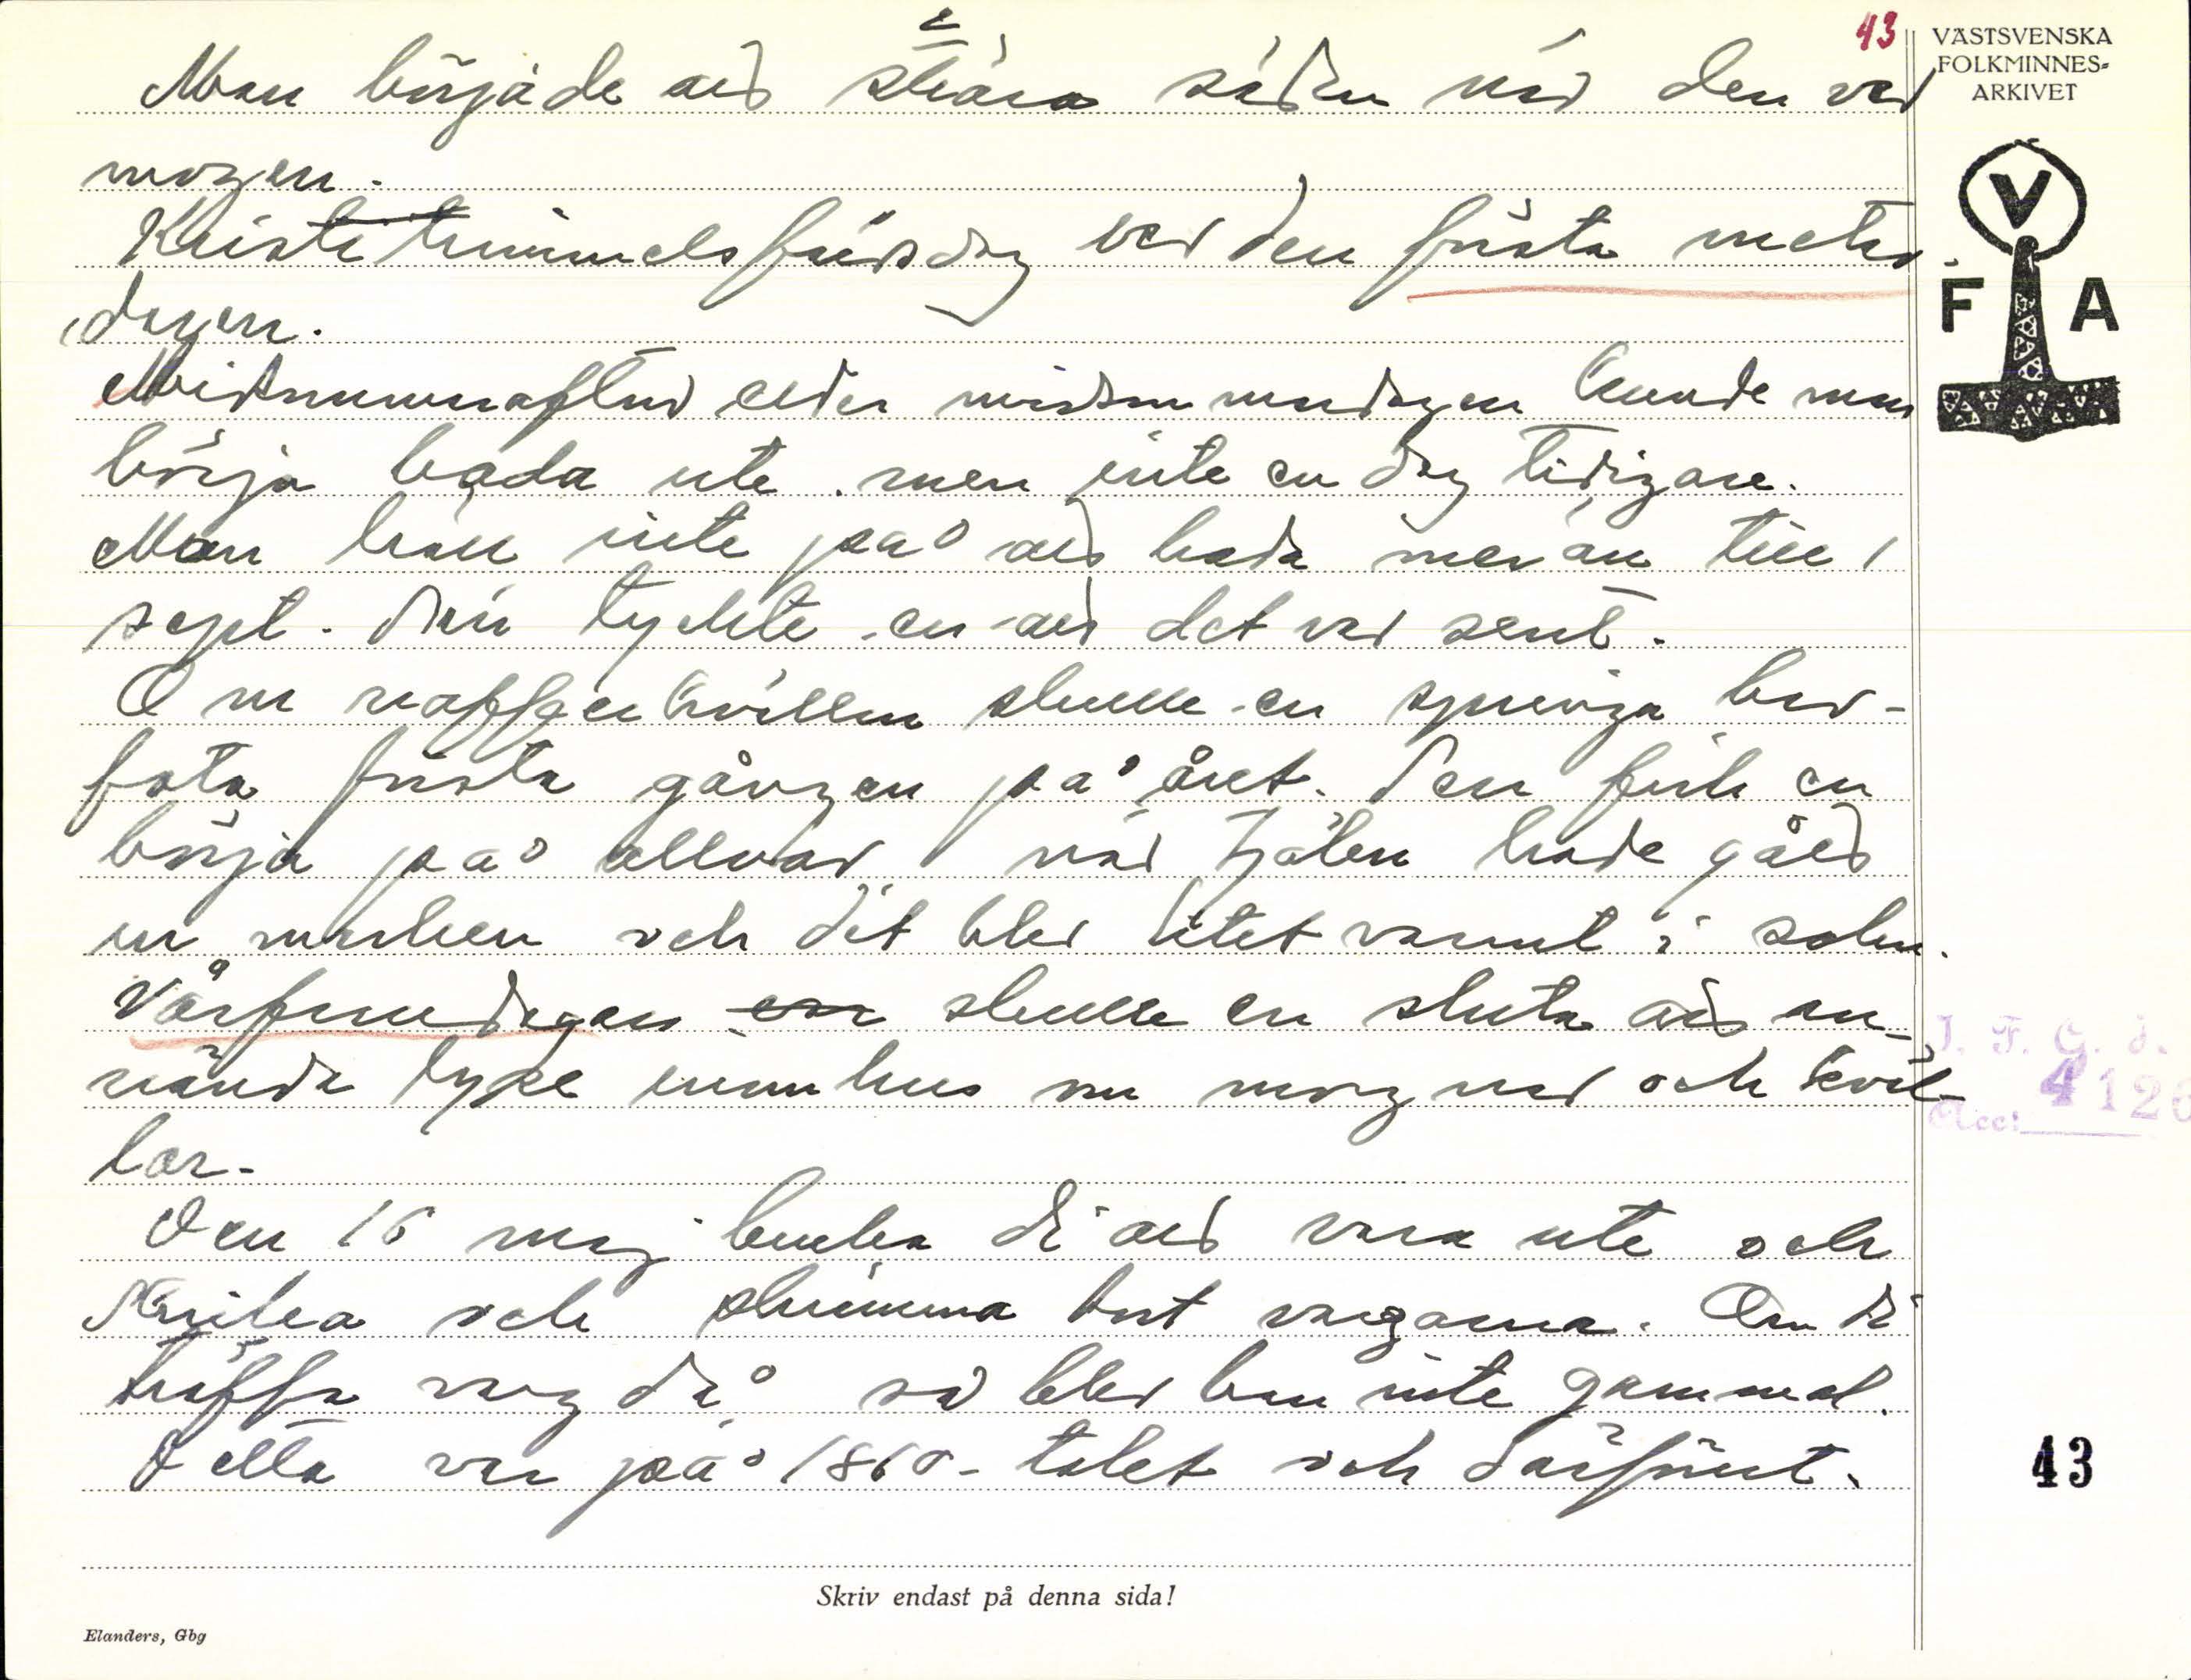 43
VÄSTSVENSKA
FOLKMINNES-
ARKIVET
V
F A
Man började att skära säden när den var
mogen.
Kristi himmelsfärsdag var den första mete
dagen.
Midsommarafton eller midsommardagen kunde man
börja bada ute. men inte en dag tidigare.
Man höll inte på att bada mer än till 1
sept. Den tyckte en att det var sent.
Om kvällen skulle en springa bar-
fota första gången på året. Sen fick en
börja på allvar när tjälen hade gått
ur marken och det blev litet varmt i solen.
Vårfrudagen skulle en sluta att an-
vända lyse inomhus om morgnar och kväl-
lar.
Den 15 maj bruka di att vara ute och
skrika och skrämma bort vargarna. Om di
träffa varg då så blev han inte gammal.
Detta var på 1860-talet och därförut.
I. F. G. d.
4126
Acc:
43
Skriv endast på denna sida!
Elanders, Gbg